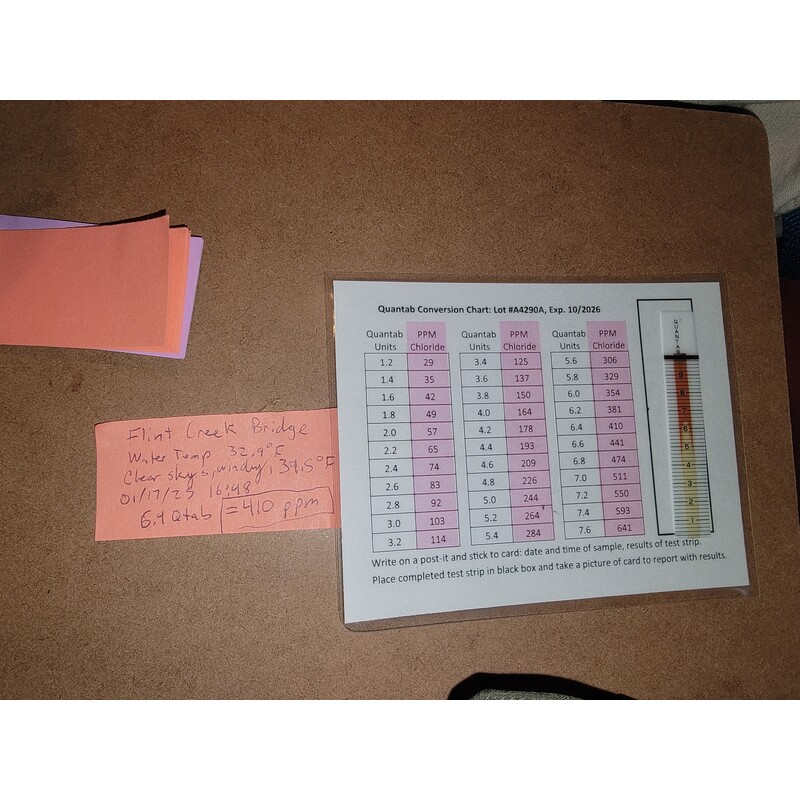 Flint Creek Bridge
Water Temp 32.9°F
Clear sky, windy, 39.5°F
01/17/23 16:48
6.4 Qtab = 410 ppm
Quantab Conversion Chart: Lot #A4290A, Exp. 10/2026
Quantab Units PPM Chloride
1.2 29
1.4 35
1.6 42
1.8 49
2.0 57
2.2 65
2.4 74
2.6 83
2.8 92
3.0 103
3.2 114
Quantab Units PPM Chloride
3.4 125
3.6 137
3.8 150
4.0 164
4.2 178
4.4 193
4.6 209
4.8 226
5.0 244
5.2 264
5.4 284
Quantab Units PPM Chloride
5.6 306
5.8 329
6.0 354
6.2 381
6.4 410
6.6 441
6.8 474
7.0 511
7.2 550
7.4 593
7.6 641
QUANTAB
9
8
7
6
5
4
3
2
1
Write on a post-it and stick to card: date and time of sample, results of test strip.
Place completed test strip in black box and take a picture of card to report with results.